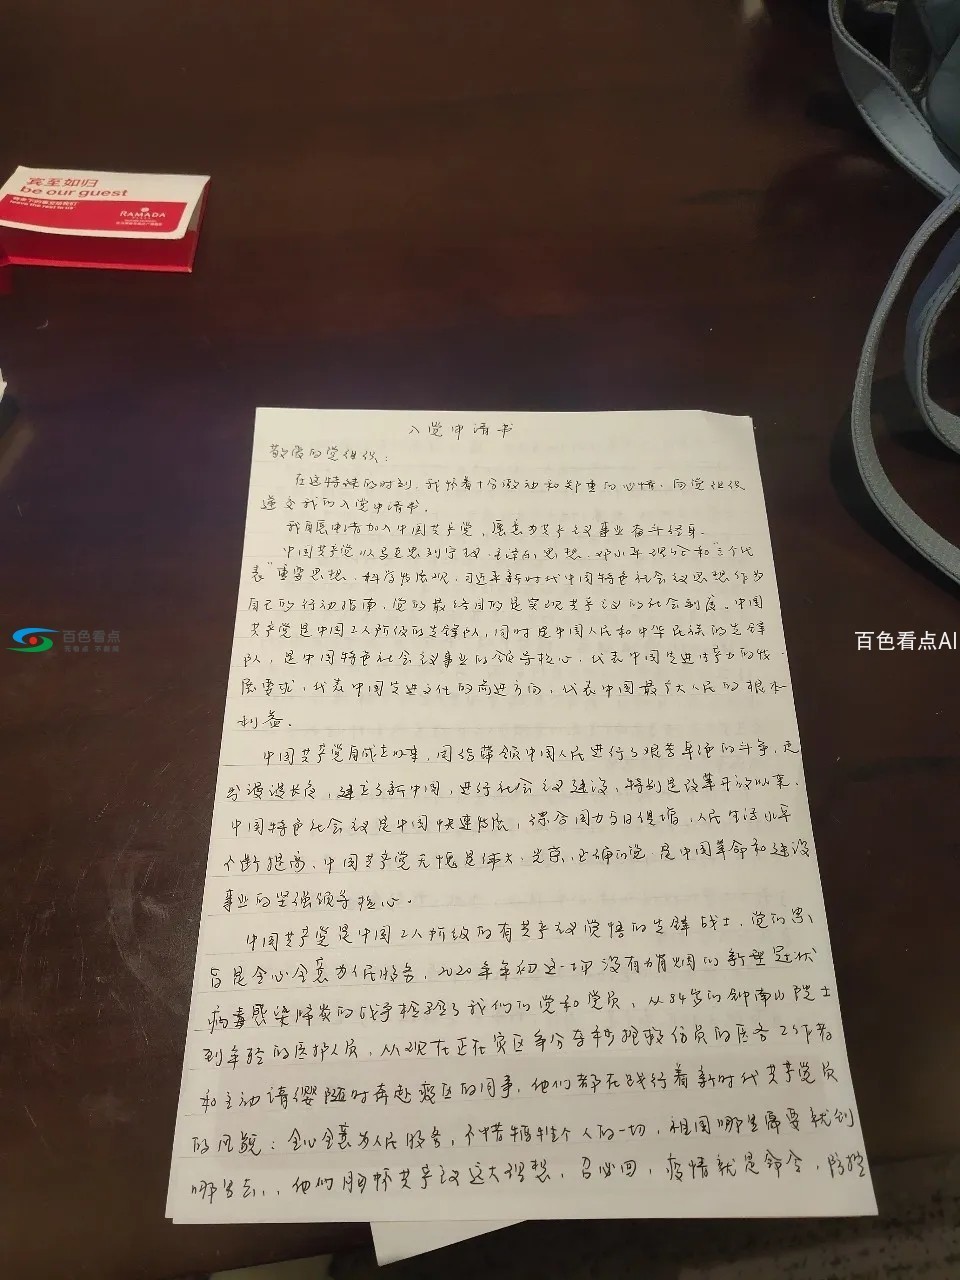 宾至如归
be our guest
leave the rest to us
RAMADA
百色看点
百色看点AI
入党申请书
敬爱的党组织:
在这特殊的时刻,我怀着十分激动和郑重的心情,向党组织
递交我的入党申请书。
我自愿申请加入中国共产党,愿意为共产主义事业奋斗终身。
中国共产党以马克思列宁主义、毛泽东思想、邓小平理论和“三个代
表”重要思想、科学发展观、习近平新时代中国特色社会主义思想作为
自己的行动指南,党的最终目的是实现共产主义的社会制度。中国
共产党是中国工人阶级的先锋队,同时是中国人民和中华民族的先锋
队,是中国特色社会主义事业的领导核心,代表中国先进生产力的发
展要求,代表中国先进文化的前进方向,代表中国最广大人民的根本
利益。
中国共产党自成立以来,团结带领中国人民进行了艰苦卓绝的斗争,走
过漫漫长夜,建立了新中国,进行社会主义建设,特别是改革开放以来,
中国特色社会主义是中国快速发展,综合国力与日俱增,人民生活水平
不断提高,中国共产党无愧是伟大、光荣、正确的党,是中国革命和建设
事业的坚强领导核心。
中国共产党是中国工人阶级的有共产主义觉悟的先锋战士,党的宗
旨是全心全意为人民服务,2020年年初这一场没有硝烟的新型冠状
病毒感染肺炎的战争检验了我们的党和党员,从84岁的钟南山院士
到年轻的医护人员,从现在正在灾区争分夺秒抢救伤员的医务工作者
和主动请缨随时奔赴疫区的同事,他们都在践行着新时代共产党员
的风貌:全心全意为人民服务,不惜牺牲个人的一切,祖国哪里需要就到
哪里去,他们胸怀共产主义远大理想,召必回,疫情就是命令,防控